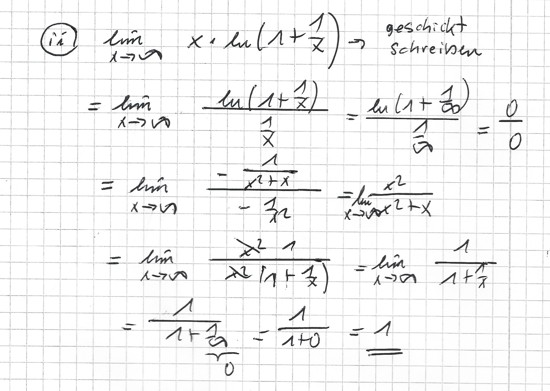 ii) lim x→∞ x · ln(1 + 1/x) → geschickt schreiben
= lim x→∞ ln(1 + 1/x) / (1/x) = ln(1 + 1/∞) / (1/∞) = 0/0
= lim x→∞ (- 1/(x² + x)) / (- 1/x²) = lim x→∞ x²/(x² + x)
= lim x→∞ x² 1 / (x² (1 + 1/x)) = lim x→∞ 1/(1 + 1/x)
= 1/(1 + 1/∞) = 1/(1+0) = 1
0